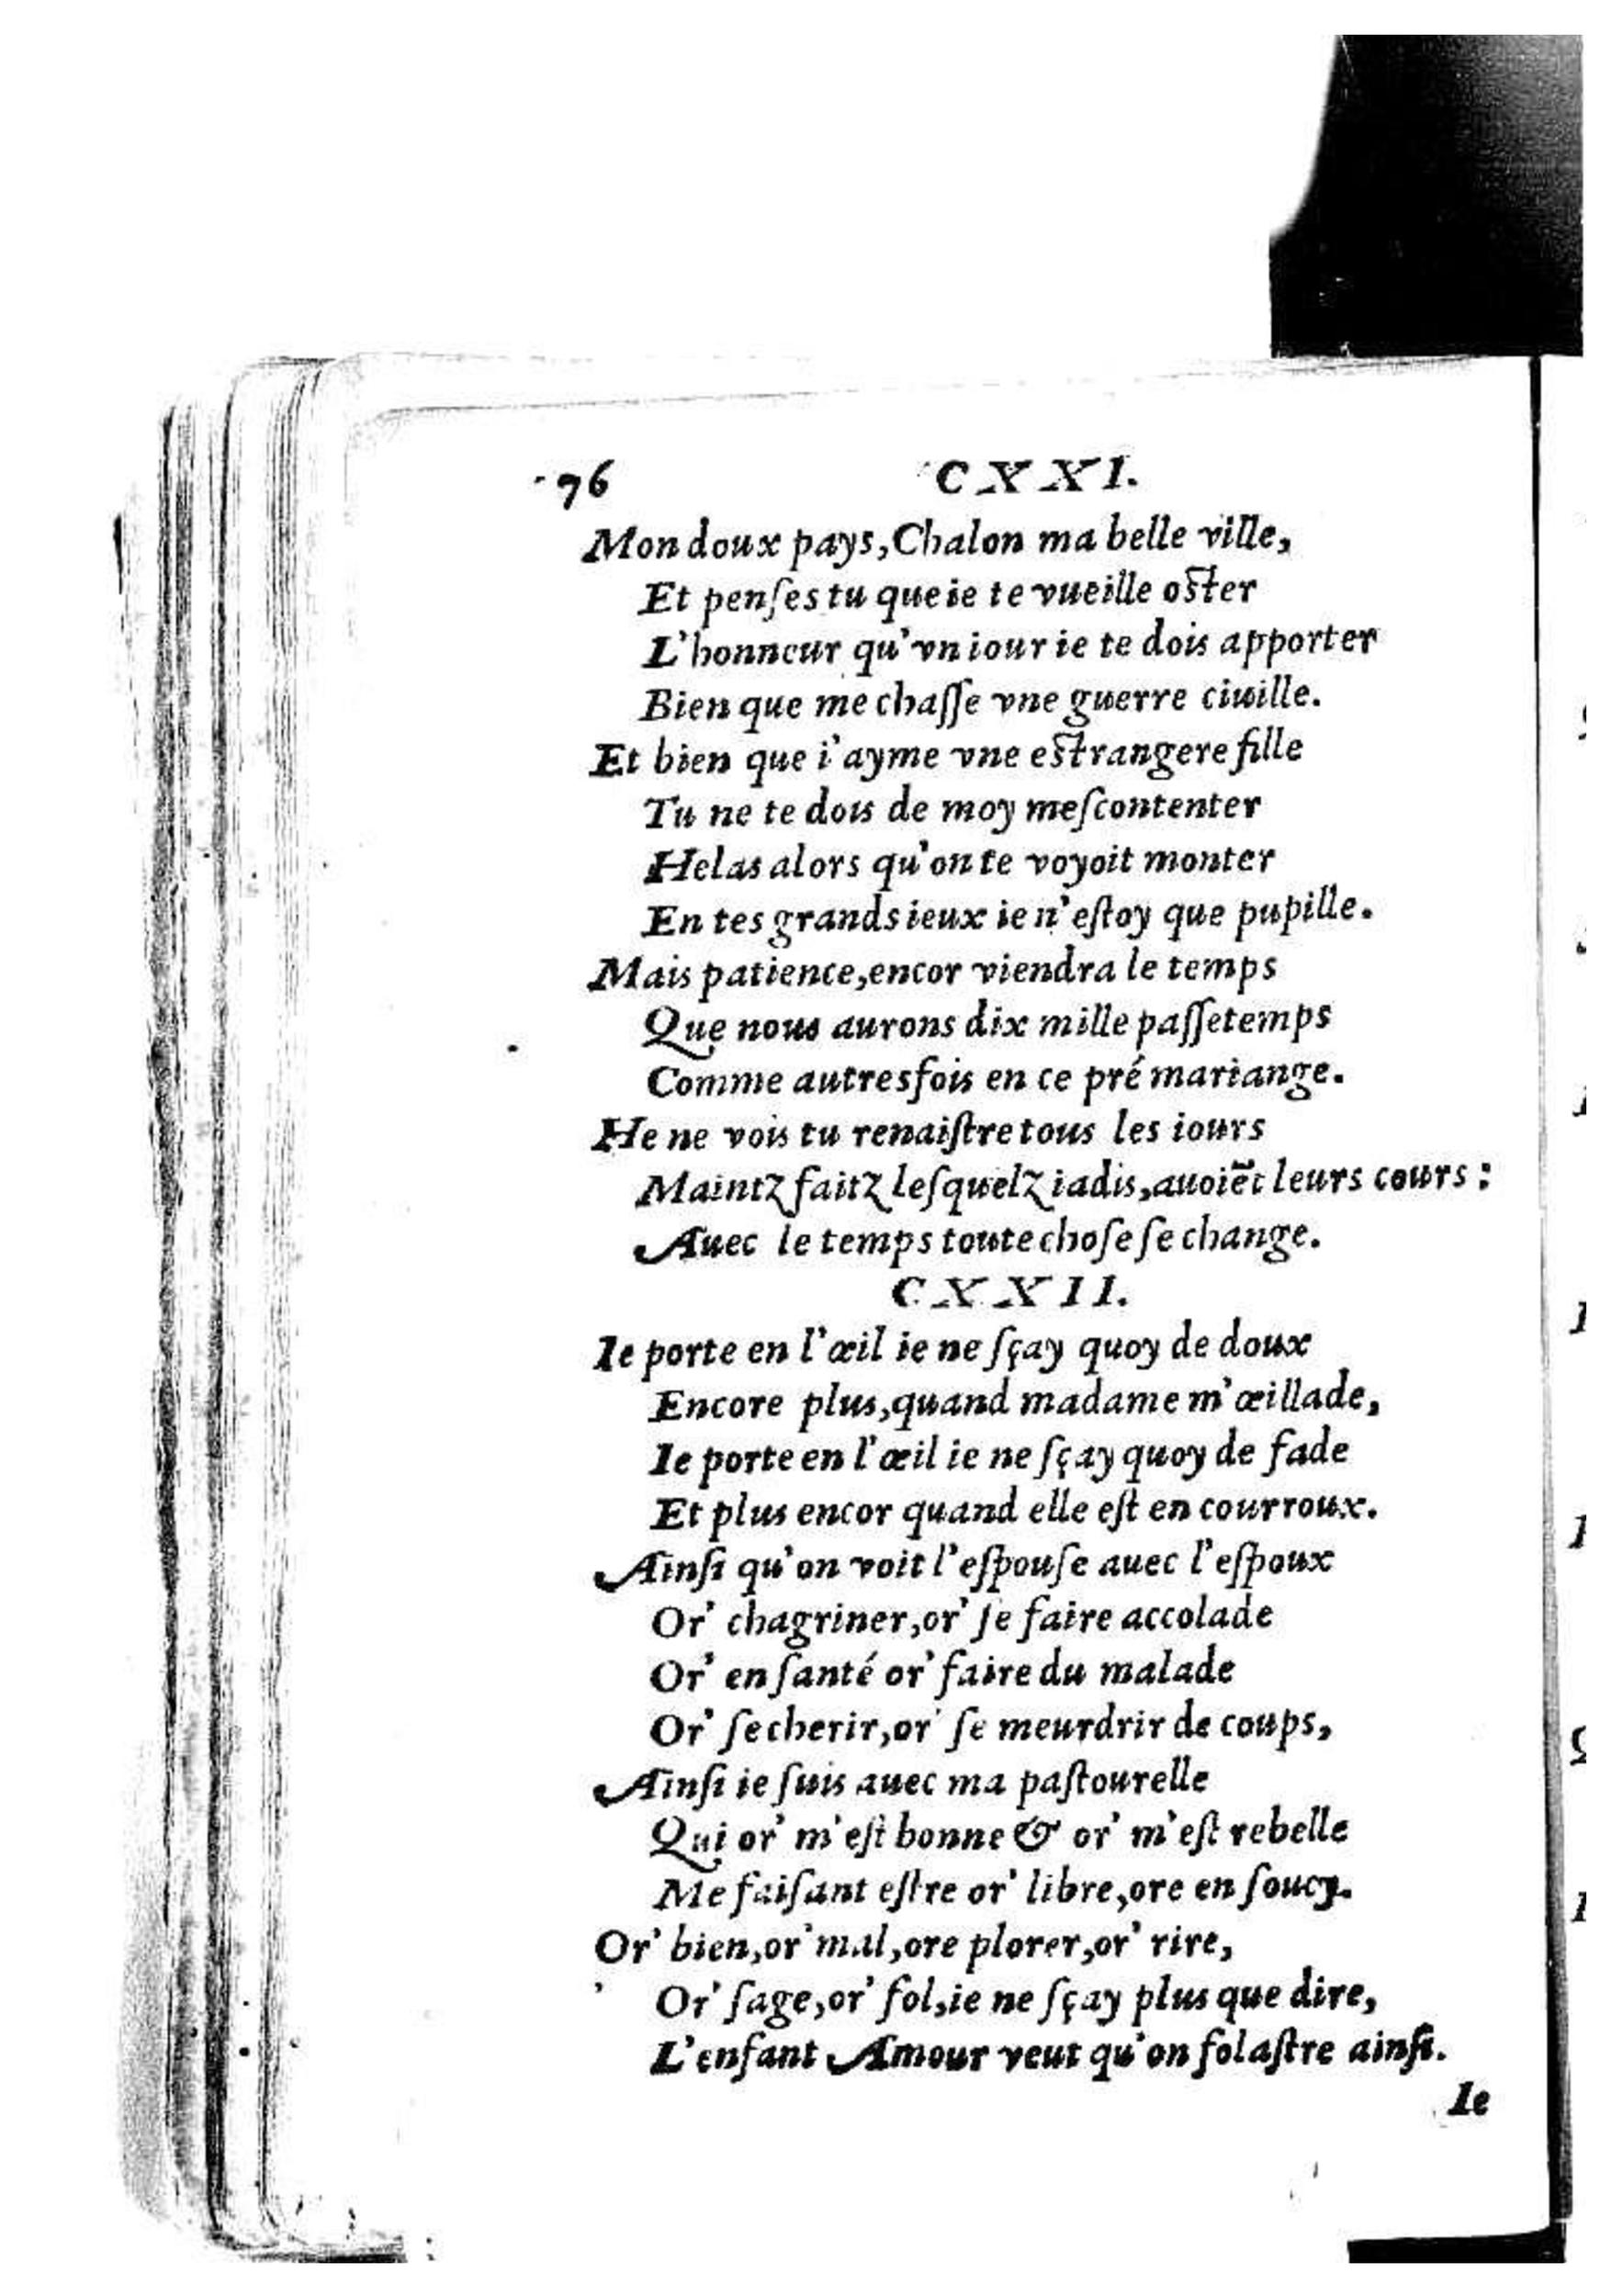 76 CXXI.
Mon doux pays, Chalon ma belle ville,
Et penſes tu que ie te vueille oſter
L'honneur qu'vn iour ie te dois apporter
Bien que me chaſſe vne guerre ciuille.
Et bien que i'ayme vne eſtrangere fille
Tu ne te dois de moy meſcontenter
Helas alors qu'on te voyoit monter
En tes grands ieux ie n'eſtoy que pupille.
Mais patience, encor viendra le temps
Que nous aurons dix mille paſſetemps
Comme autresfois en ce pré mariange.
He ne vois tu renaiſtre tous les iours
Maintz faitz leſquelz iadis, auoiẽt leurs cours:
Auec le temps toute choſe ſe change.
CXXII.
Ie porte en l'œil ie ne ſçay quoy de doux
Encore plus, quand madame m'œillade,
Ie porte en l'œil ie ne ſçay quoy de fade
Et plus encor quand elle eſt en courroux.
Ainſi qu'on voit l'eſpouſe auec l'eſpoux
Or' chagriner, or' ſe faire accolade
Or' en ſanté or' faire du malade
Or' ſe cherir, or' ſe meurdrir de coups,
Ainſi ie ſuis auec ma paſtourelle
Qui or' m'eſt bonne & or' m'eſt rebelle
Me faiſant eſtre or' libre, ore en ſoucy.
Or' bien, or' mal, ore plorer, or' rire,
Or' ſage, or' fol, ie ne ſçay plus que dire,
L'enfant Amour veut qu'on folaſtre ainſi.
Ie